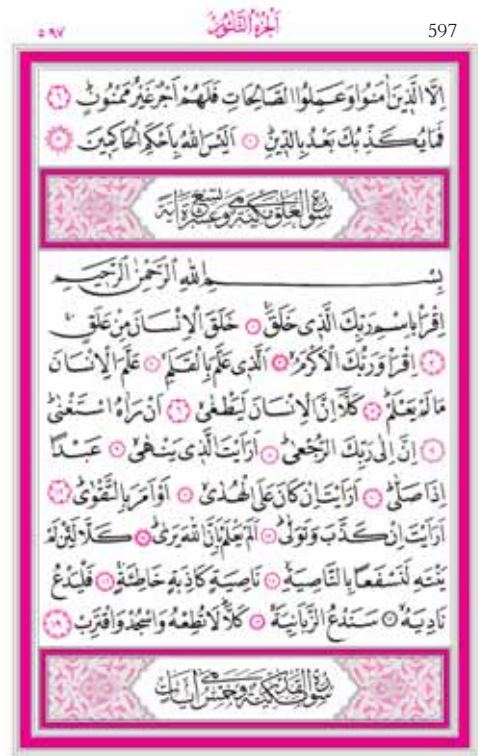 ٥٩٧ اَلْجُزْءُ الثَّلٰثُونَ 597
اِلَّا الَّذٖينَ اٰمَنُوا وَعَمِلُوا الصَّالِحَاتِ فَلَهُمْ اَجْرٌ غَيْرُ مَمْنُونٍ ﴿٦﴾
فَمَا يُكَذِّبُكَ بَعْدُ بِالدّٖينِ ﴿٧﴾ اَلَيْسَ اللّٰهُ بِاَحْكَمِ الْحَاكِمٖينَ ﴿٨﴾
سُورَةُ الْعَلَقِ مَكِّيَّةٌ وَهِيَ تِسْعَ عَشْرَةَ اٰيَةً
بِسْمِ اللّٰهِ الرَّحْمٰنِ الرَّحٖيمِ
اِقْرَأْ بِاسْمِ رَبِّكَ الَّذٖى خَلَقَ ﴿١﴾ خَلَقَ الْاِنْسَانَ مِنْ عَلَقٍ
﴿٢﴾ اِقْرَأْ وَرَبُّكَ الْاَكْرَمُ ﴿٣﴾ اَلَّذٖى عَلَّمَ بِالْقَلَمِ ﴿٤﴾ عَلَّمَ الْاِنْسَانَ
مَا لَمْ يَعْلَمْ ﴿٥﴾ كَلَّا اِنَّ الْاِنْسَانَ لَيَطْغٰى ﴿٦﴾ اَنْ رَاٰهُ اسْتَغْنٰى
﴿٧﴾ اِنَّ اِلٰى رَبِّكَ الرُّجْعٰى ﴿٨﴾ اَرَاَيْتَ الَّذٖى يَنْهٰى ﴿٩﴾ عَبْدًا
اِذَا صَلّٰى ﴿١٠﴾ اَرَاَيْتَ اِنْ كَانَ عَلَى الْهُدٰى ﴿١١﴾ اَوْ اَمَرَ بِالتَّقْوٰى ﴿١٢﴾
اَرَاَيْتَ اِنْ كَذَّبَ وَتَوَلّٰى ﴿١٣﴾ اَلَمْ يَعْلَمْ بِاَنَّ اللّٰهَ يَرٰى ﴿١٤﴾ كَلَّا لَئِنْ لَمْ
يَنْتَهِ لَنَسْفَعًا بِالنَّاصِيَةِ ﴿١٥﴾ نَاصِيَةٍ كَاذِبَةٍ خَاطِئَةٍ ﴿١٦﴾ فَلْيَدْعُ
نَادِيَهُ ﴿١٧﴾ سَنَدْعُ الزَّبَانِيَةَ ﴿١٨﴾ كَلَّا لَا تُطِعْهُ وَاسْجُدْ وَاقْتَرِبْ ﴿١٩﴾
سُورَةُ الْقَدْرِ مَكِّيَّةٌ وَهِيَ خَمْسُ اٰيَاتٍ